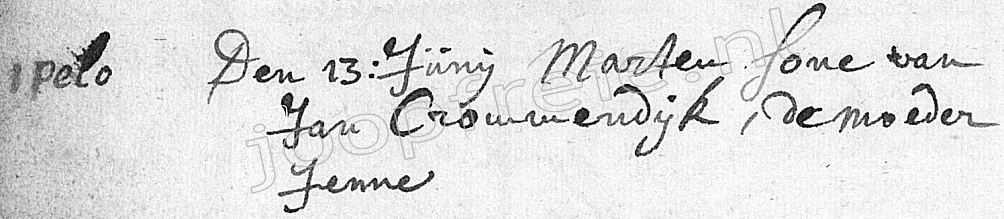 1 Pelo Den 13: Jünij Marten sone van
Jan Crommendijk, de moeder
Jenne
joopfrele.nl